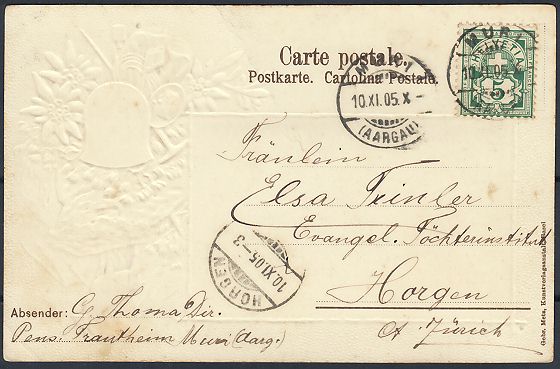 Carte postale.
Postkarte. Cartolina Postale.
MURI
10.XI.05.X-
(AARGAU)
MURI
10.XI.05
HELVETIA
5
Fräulein
Elsa Trinler
Evangel. Töchterinstitut
Horgen
Ct. Zürich
HORGEN
10.XI.05-3
Absender: G. Thoma Dir.
Pens. Frautheim Muri (Aarg.)
Gebr. Metz, Kunstverlagsanstalt, Basel